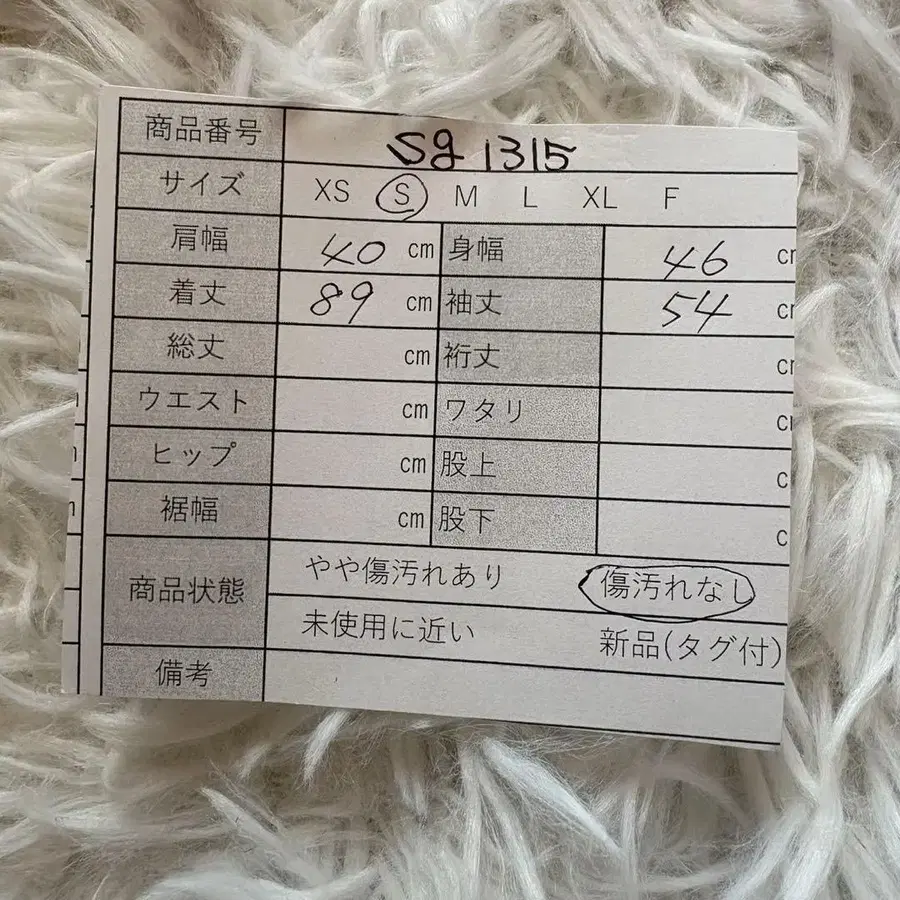 商品番号 sg 1315
サイズ XS S M L XL F
肩幅 40 cm 身幅 46 cm
着丈 89 cm 袖丈 54 cm
総丈 cm 裄丈 cm
ウエスト cm ワタリ cm
ヒップ cm 股上 c
裾幅 cm 股下 c
商品状態 やや傷汚れあり 傷汚れなし
未使用に近い 新品(タグ付)
備考